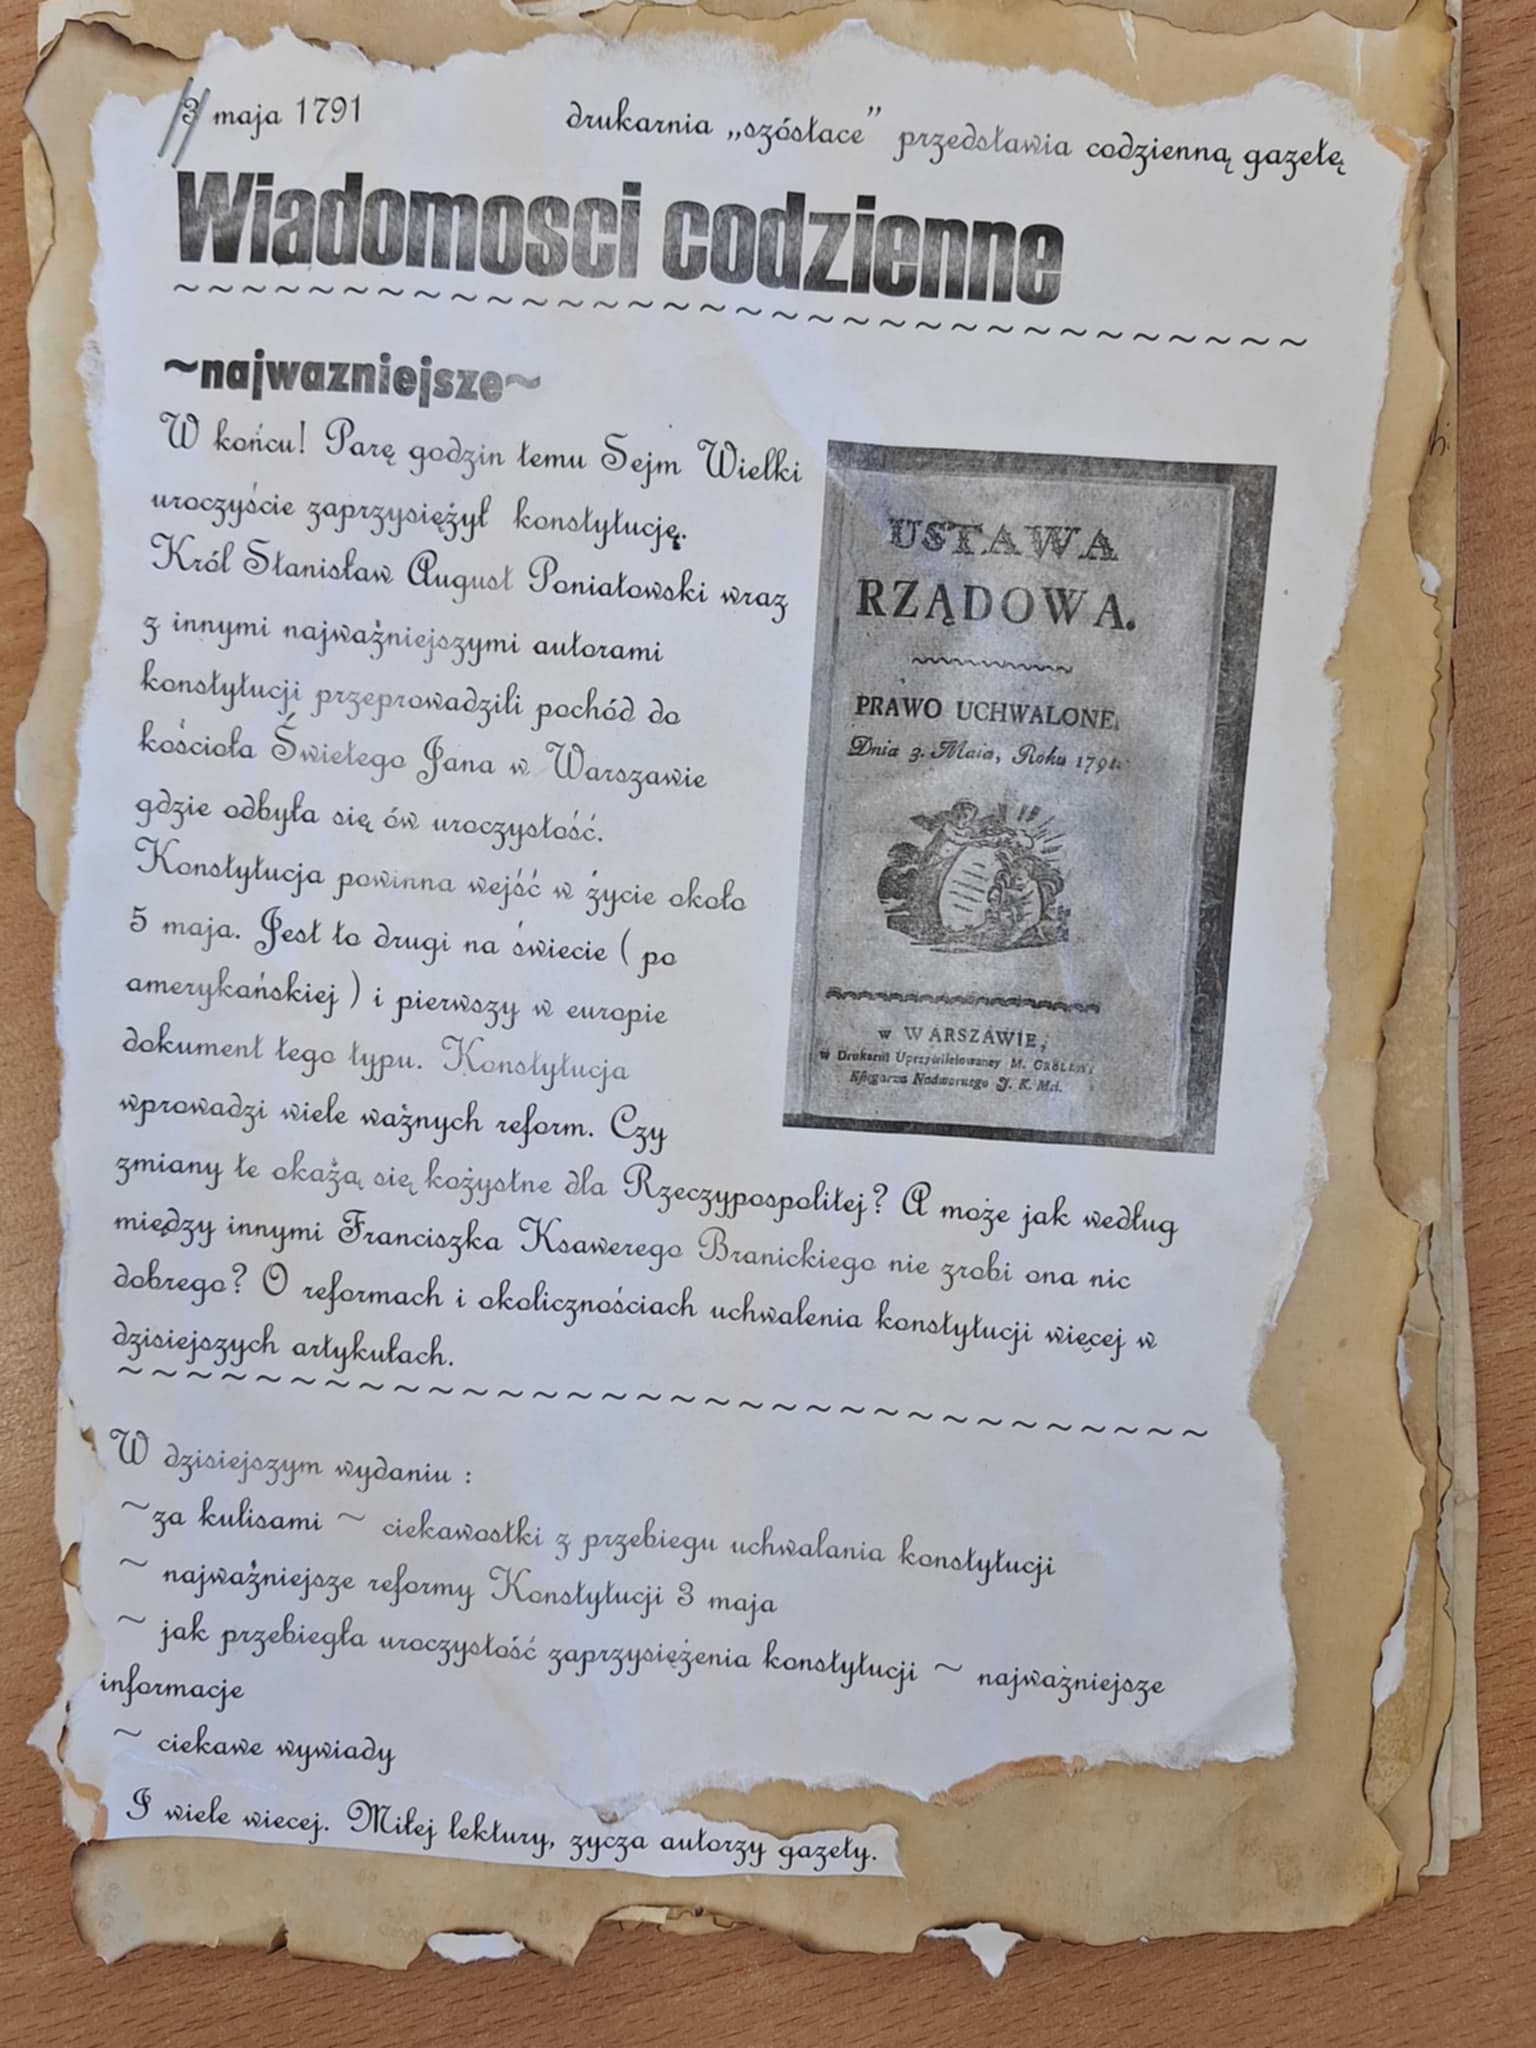 3 maja 1791
drukarnia „szóstace” przedstawia codzienną gazetę
Wiadomosci codzienne
~~~~~~~~~~~~~~~~~~~~~~~~~~~~~~~~
~najwazniejsze~
W końcu! Parę godzin temu Sejm Wielki
uroczyście zaprzysiężył konstytucję.
Król Stanisław August Poniatowski wraz
z innymi najważniejszymi autorami
konstytucji przeprowadzili pochód do
kościoła Świetego Jana w Warszawie
gdzie odbyła się ów uroczystość.
Konstytucja powinna wejść w życie około
5 maja. Jest to drugi na świecie ( po
amerykańskiej ) i pierwszy w europie
dokument tego typu. Konstytucja
wprowadzi wiele ważnych reform. Czy
zmiany te okażą się kożystne dla Rzeczypospolitej? A może jak według
między innymi Franciszka Ksawerego Branickiego nie zrobi ona nic
dobrego? O reformach i okolicznościach uchwalenia konstytucji więcej w
dzisiejszych artykułach.
~~~~~~~~~~~~~~~~~~~~~~~~~~~~~~~~
USTAWA
RZĄDOWA.
PRAWO UCHWALONE.
Dnia 3. Maia, Roku 1791.
w WARSZAWIE,
w Drukarni Uprzywileiowaney M. GRÖLLA
Księgarza Nadwornego J. K. Mci.
W dzisiejszym wydaniu :
~za kulisami ~ ciekawostki z przebiegu uchwalania konstytucji
~ najważniejsze reformy Konstytucji 3 maja
~ jak przebiegła uroczystość zaprzysiężenia konstytucji ~ najważniejsze
informacje
~ ciekawe wywiady
I wiele wiecej. Miłej lektury, zycza autorzy gazety.